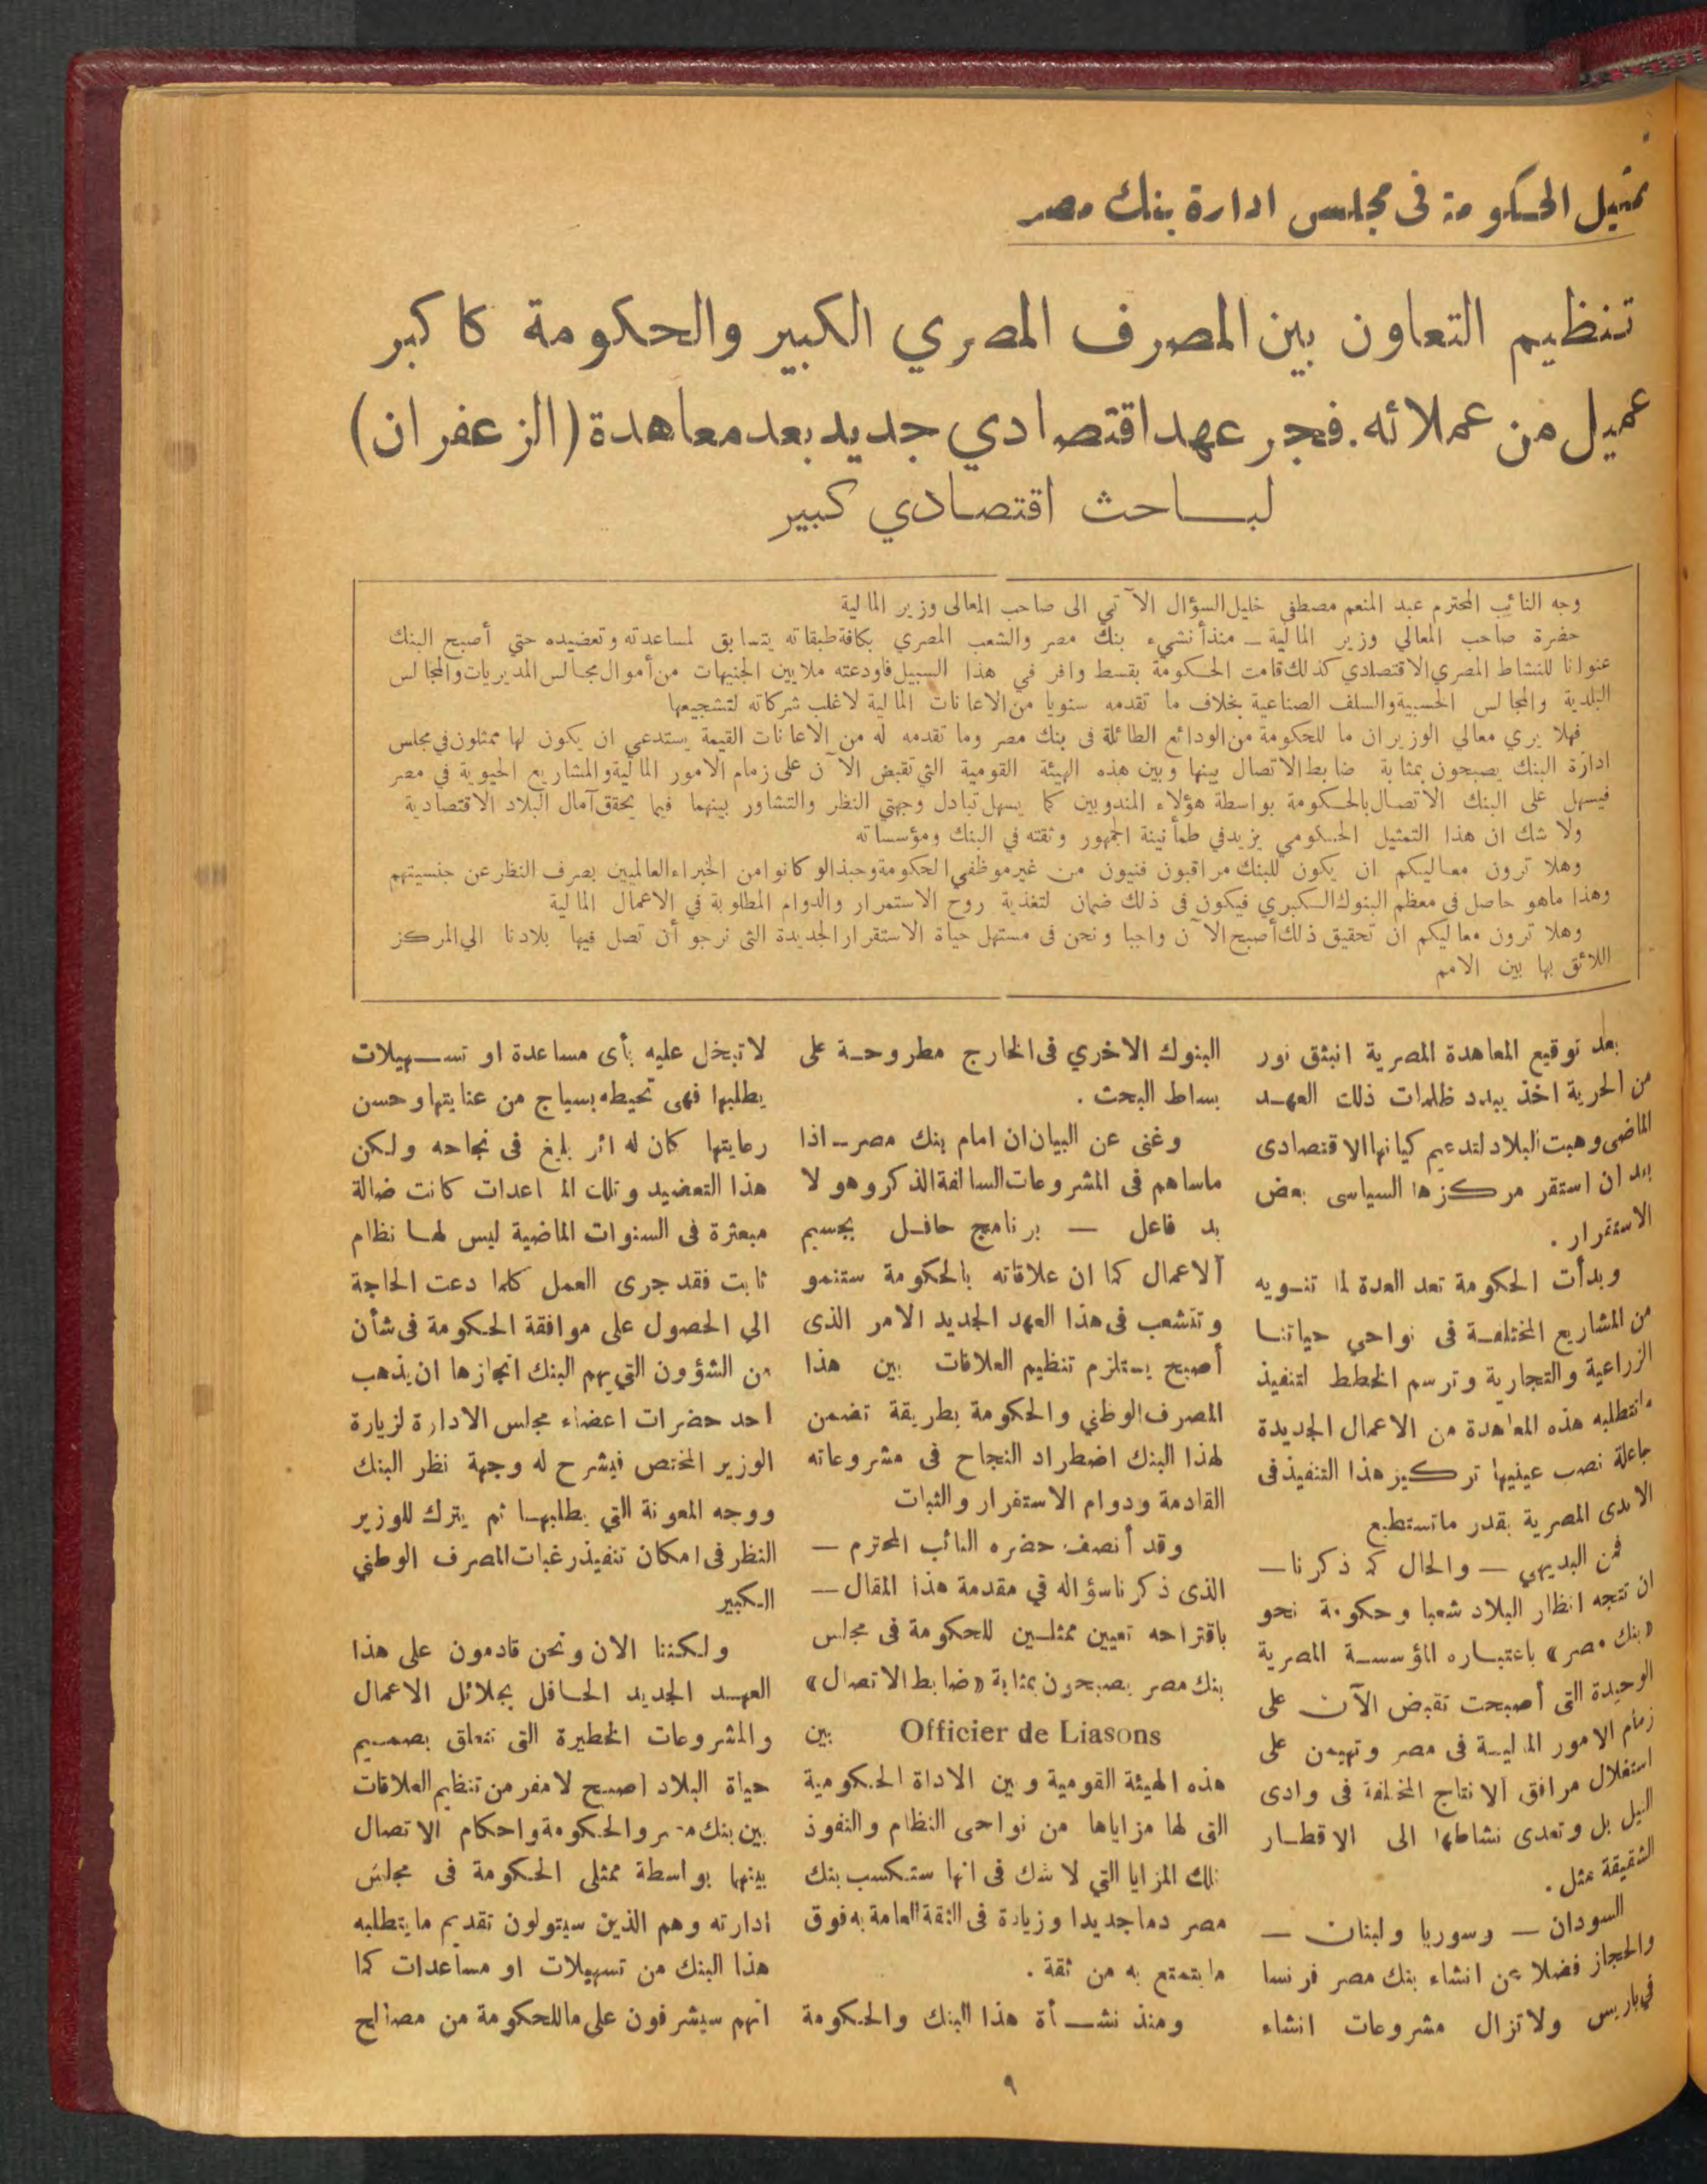 تمثيل الحكومة فى مجلس ادارة بنك مصر
تنظيم التعاون بين المصرف المصري الكبير والحكومة كاكبر
عميل من عملائه. فجر عهد اقتصادي جديد بعد معاهدة (الزعفران)
لباحث اقتصادي كبير
وجه النائب المحترم عبد المنعم مصطفي خليل السؤال الآتي الى صاحب المعالى وزير المالية
حضرة صاحب المعالي وزير المالية — منذ أنشيء بنك مصر والشعب المصري بكافة طبقاته يتسابق لمساعدته وتعضيده حتي أصبح البنك
عنوانا للنشاط المصري الاقتصادي كذلك قامت الحكومة بقسط وافر في هذا السبيل فاودعته ملايين الجنيهات من أموال مجالس المديريات والمجالس
البلدية والمجالس الحسبية والسلف الصناعية بخلاف ما تقدمه سنويا من الاعانات المالية لاغلب شركاته لتشجيعها
فهلا يري معالي الوزير ان ما للحكومة من الودائع الطائلة فى بنك مصر وما تقدمه له من الاعانات القيمة يستدعي ان يكون لها ممثلون في مجلس
ادارة البنك يصبحون بمثابة ضابط الاتصال بينها وبين هذه الهيئة القومية التي تقبض الآن على زمام الامور المالية والمشاريع الحيوية في مصر
فيسهل على البنك الاتصال بالحكومة بواسطة هؤلاء المندوبين كما يسهل تبادل وجهتي النظر والتشاور بينهما فيما يحقق آمال البلاد الاقتصادية
ولا شك ان هذا التمثيل الحكومي يزيد في طمأنينة الجمهور وثقته في البنك ومؤسساته
وهلا ترون معاليكم ان يكون للبنك مراقبون فنيون من غير موظفي الحكومة وحبذا لو كانوا من الخبراء العالميين بصرف النظر عن جنسيتهم
وهذا ماهو حاصل في معظم البنوك الكبري فيكون فى ذلك ضمان لتغذية روح الاستمرار والدوام المطلوبة في الاعمال المالية
وهلا ترون معاليكم ان تحقيق ذلك أصبح الآن واجبا ونحن فى مستهل حياة الاستقرار الجديدة التى نرجو أن تصل فيها بلادنا الي المركز
اللائق بها بين الامم
بعد توقيع المعاهدة المصرية انبثق نور
من الحرية اخذ يبدد ظلمات ذلك العهد
الماضى وهبت البلاد لتدعيم كيانها الاقتصادى
بعد ان استقر مركزها السياسى بعض
الاستقرار .
وبدأت الحكومة تعد العدة لما تنويه
من المشاريع المختلفة فى نواحي حياتنا
الزراعية والتجارية وترسم الخطط لتنفيذ
ماتتطلبه هذه المعاهدة من الاعمال الجديدة
جاعلة نصب عينيها تركيز هذا التنفيذ فى
الايدى المصرية بقدر ماتستطيع
فمن البديهي — والحال كما ذكرنا —
ان تتجه انظار البلاد شعبا وحكومة نحو
«بنك مصر» باعتباره المؤسسة المصرية
الوحيدة التى أصبحت تقبض الآن على
زمام الامور المالية فى مصر وتهيمن على
استغلال مرافق الانتاج المختلفة فى وادى
النيل بل وتعدى نشاطها الى الاقطار
الشقيقة مثل .
السودان — وسوريا ولبنان —
والحجاز فضلا عن انشاء بنك مصر فرنسا
في باريس ولاتزال مشروعات انشاء
البنوك الاخري فى الخارج مطروحة على
بساط البحث .
وغنى عن البيان ان امام بنك مصر — اذا
ماساهم فى المشروعات السالفة الذكر وهو لا
بد فاعل — برنامج حافل بجسيم
الاعمال كما ان علاقاته بالحكومة ستنمو
وتتشعب فى هذا العهد الجديد الامر الذى
أصبح يستلزم تنظيم العلاقات بين هذا
المصرف الوطني والحكومة بطريقة تضمن
لهذا البنك اضطراد النجاح فى مشروعاته
القادمة ودوام الاستقرار والثبات
وقد أنصف حضره النائب المحترم —
الذى ذكرنا سؤاله في مقدمة هذا المقال —
باقتراحه تعيين ممثلين للحكومة فى مجلس
بنك مصر يصبحون بمثابة «ضابط الاتصال»
Officier de Liasons بين
هذه الهيئة القومية وبين الاداة الحكومية
التى لها مزاياها من نواحى النظام والنفوذ
تلك المزايا التي لا شك فى انها ستكسب بنك
مصر دما جديدا وزيادة فى الثقة العامة به فوق
مايتمتع به من ثقة .
ومنذ نشأة هذا البنك والحكومة
لاتبخل عليه بأى مساعدة او تسهيلات
يطلبها فهى تحيطه بسياج من عنايتها وحسن
رعايتها كان له اثر بليغ فى نجاحه ولكن
هذا التعضيد وتلك المساعدات كانت ضالة
مبعثرة فى السنوات الماضية ليس لها نظام
ثابت فقد جرى العمل كلما دعت الحاجة
الي الحصول على موافقة الحكومة فى شأن
من الشؤون التي يهم البنك انجازها ان يذهب
احد حضرات اعضاء مجلس الادارة لزيارة
الوزير المختص فيشرح له وجهة نظر البنك
ووجه المعونة التي يطلبها ثم يترك للوزير
النظر فى امكان تنفيذ رغبات المصرف الوطني
الكبير
ولكننا الان ونحن قادمون على هذا
العهد الجديد الحافل بجلائل الاعمال
والمشروعات الخطيرة التى تتعلق بصميم
حياة البلاد اصبح لامفر من تنظيم العلاقات
بين بنك مصر والحكومة واحكام الاتصال
بينها بواسطة ممثلى الحكومة فى مجلس
ادارته وهم الذين سيتولون تقديم مايتطلبه
هذا البنك من تسهيلات او مساعدات كما
انهم سيشرفون على ماللحكومة من مصالح
٩